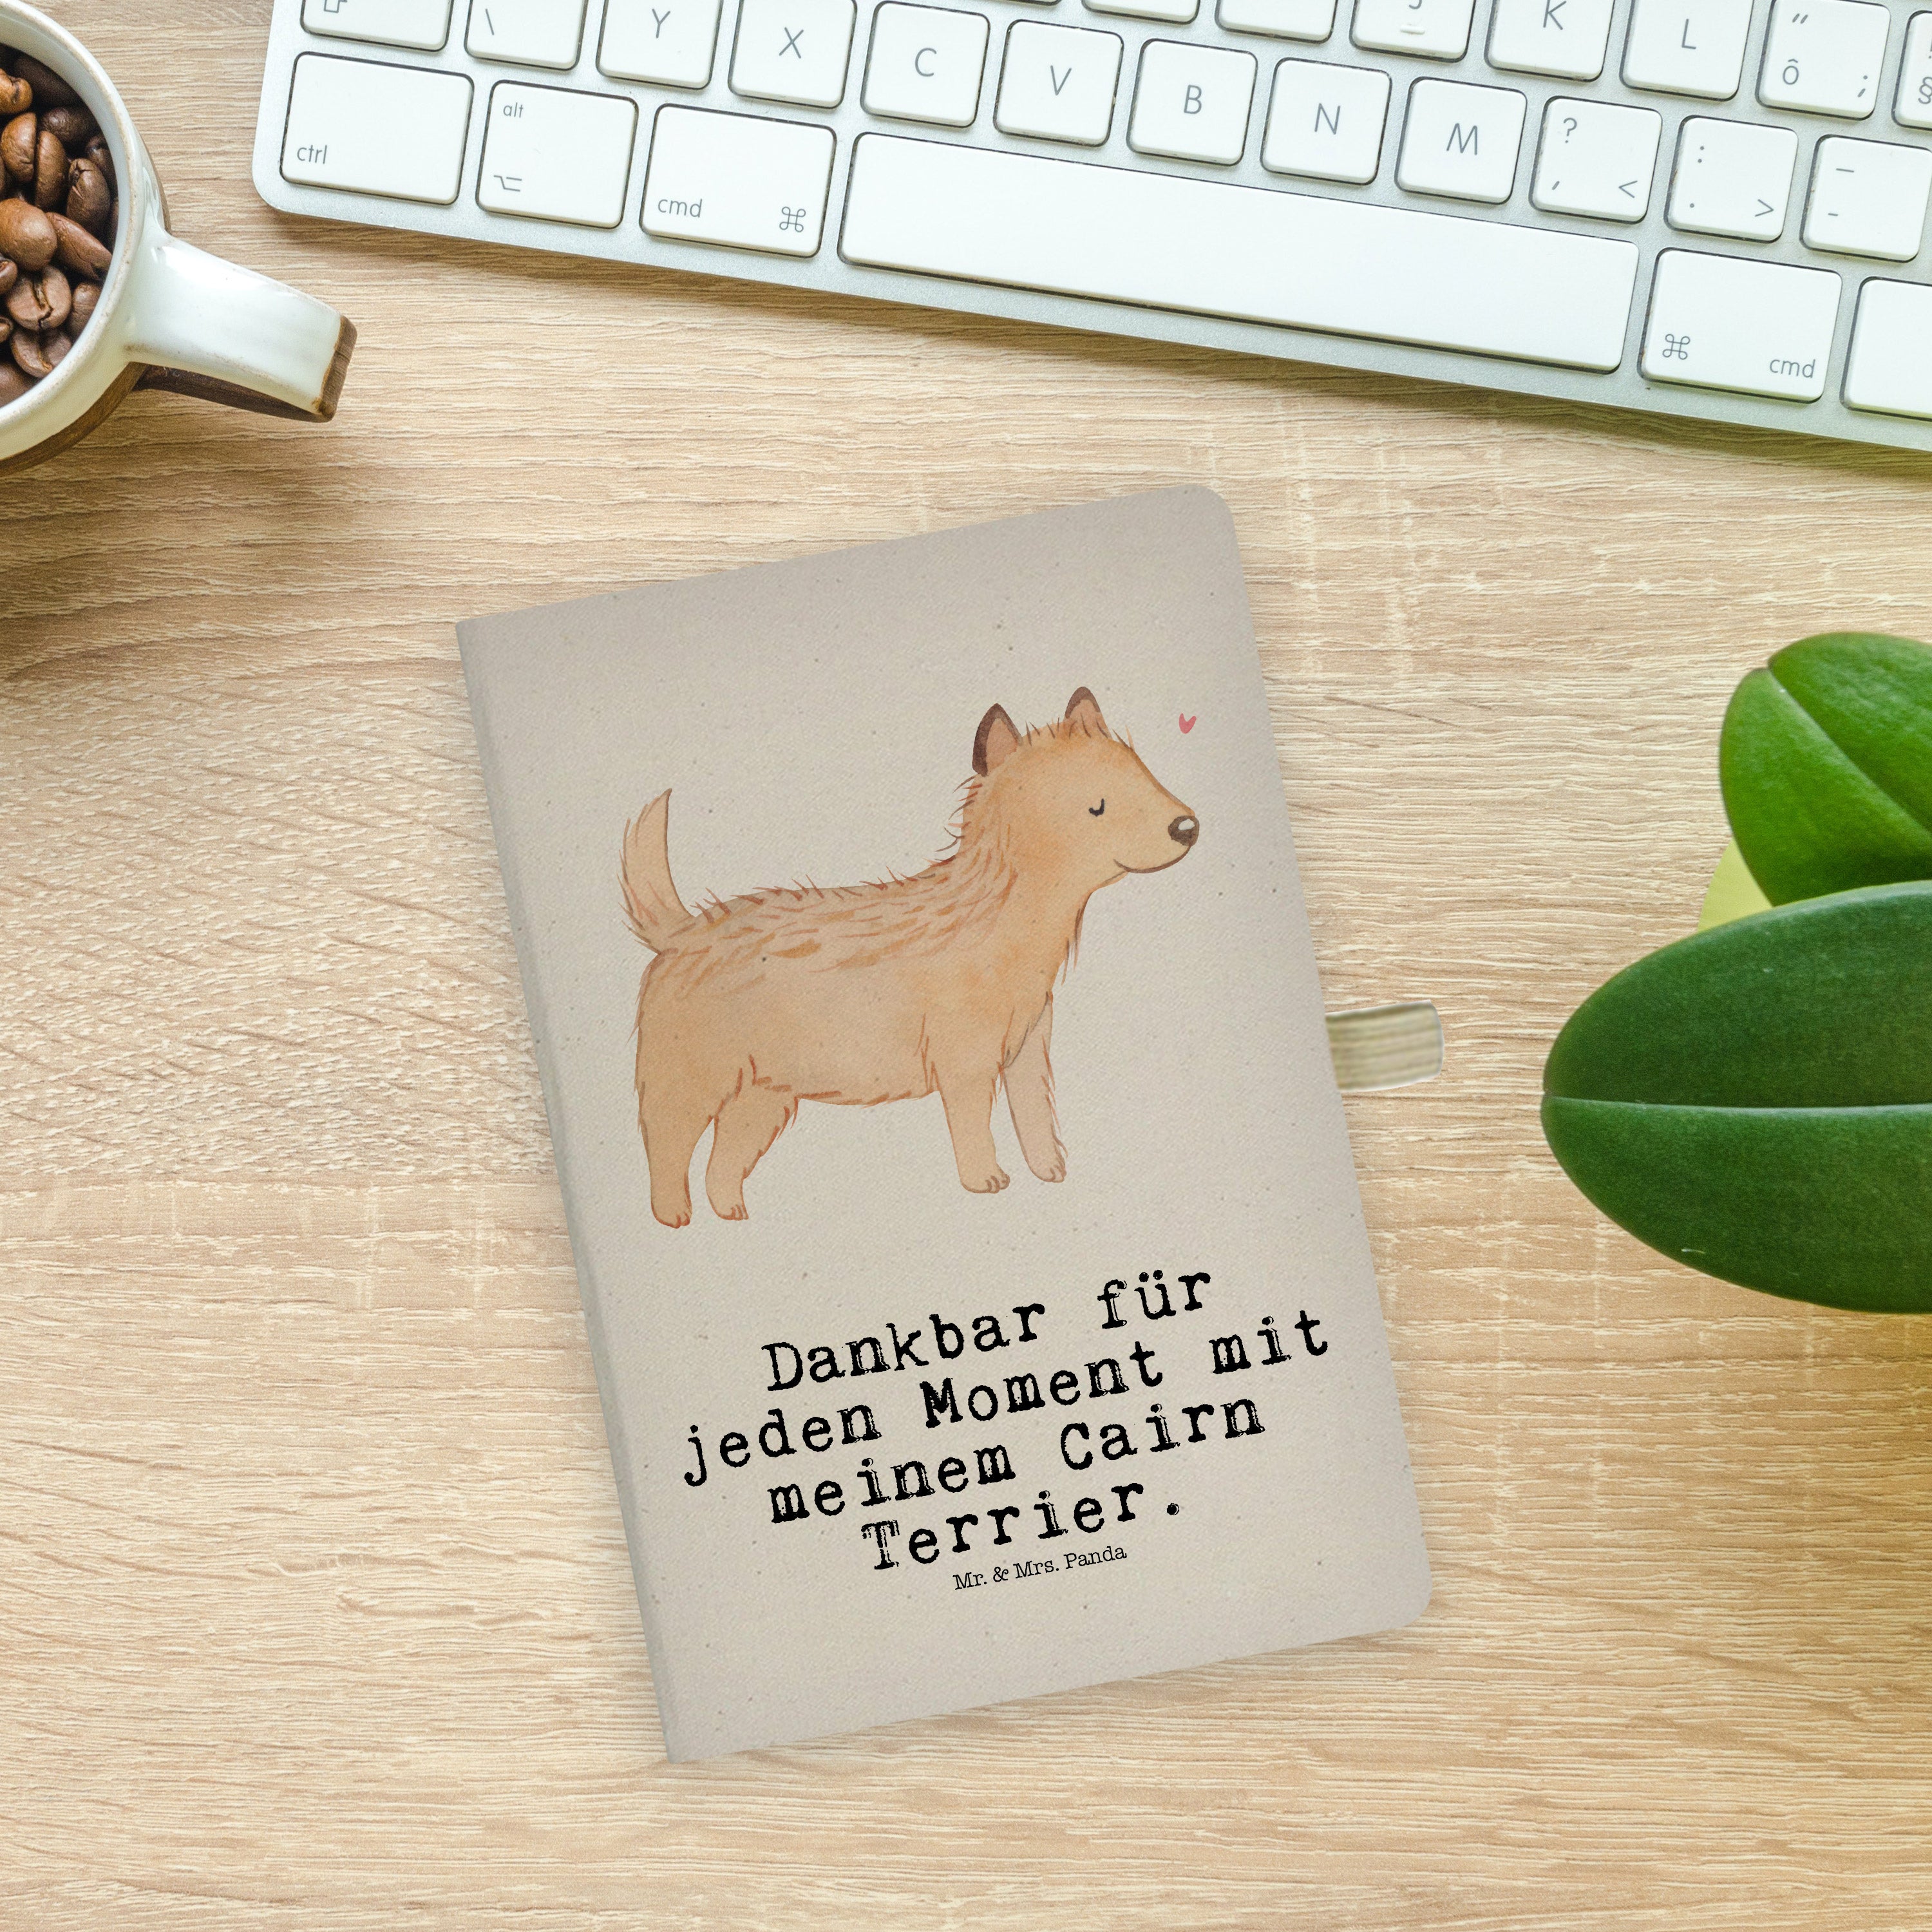 \ Y X C V B N M J K L
“ Ô ;
§
ctrl
alt
cmd ⌘
? , <
: . >
– -
⌘ cmd
Dankbar für
jeden Moment mit
meinem Cairn
Terrier.
Mr. & Mrs. Panda